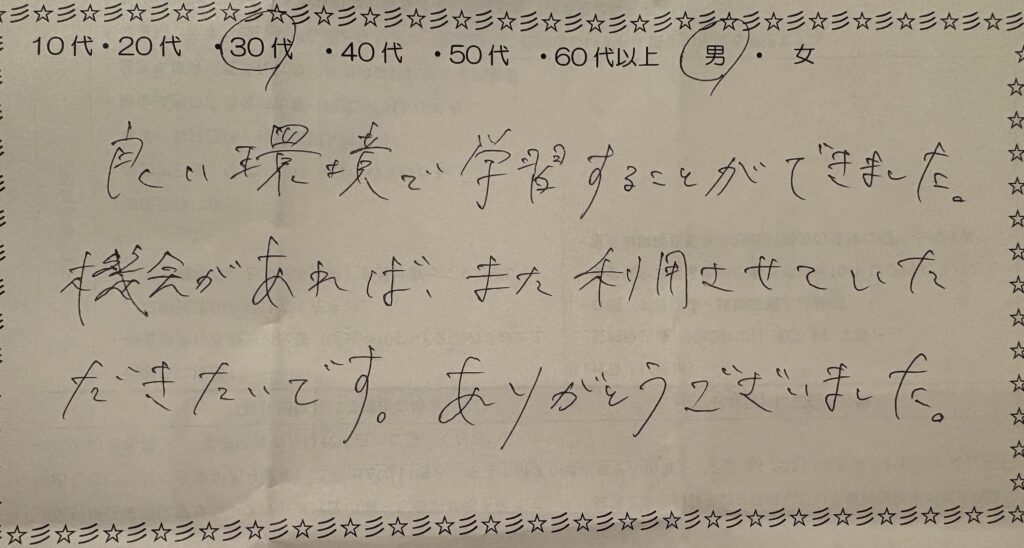 10代・20代 ・30代 ・40代 ・50代 ・60代以上 男 ・ 女
良い環境で学習することができました。
機会があれば、また利用させていた
だきたいです。ありがとうございました。